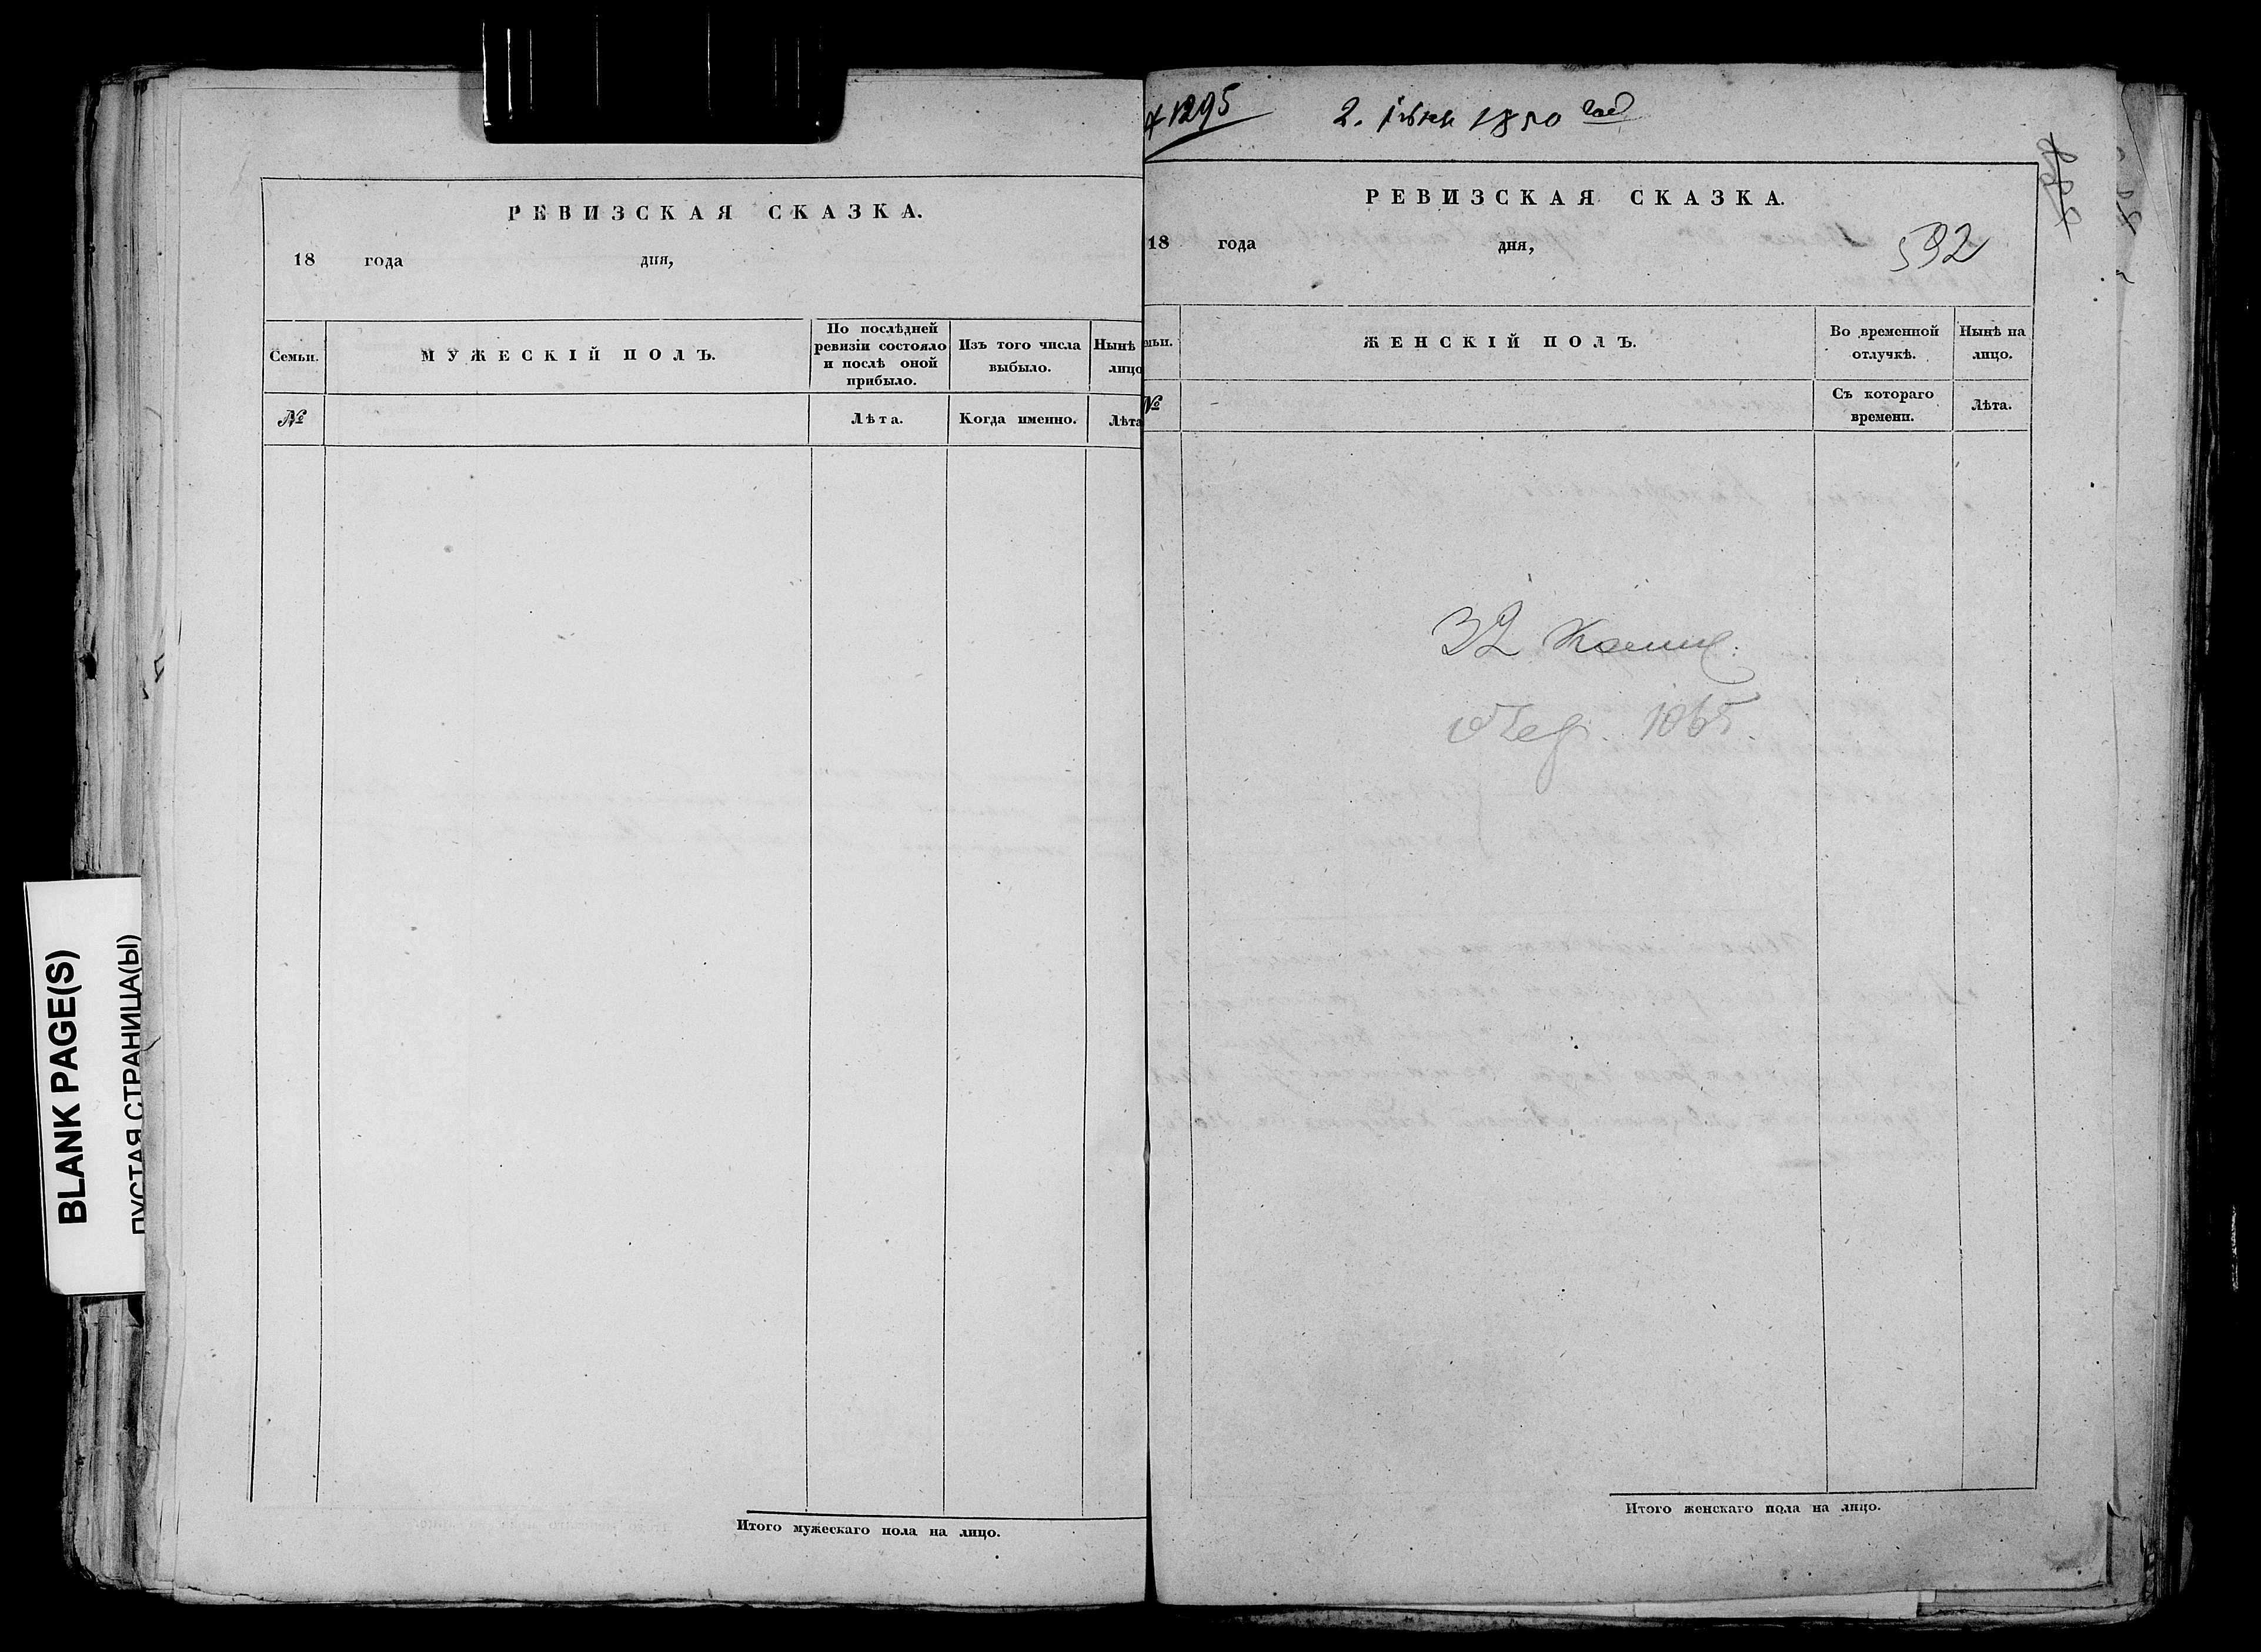 BLANK PAGE(S)
ПУСТАЯ СТРАНИЦА(Ы)
РЕВИЗСКАЯ СКАЗКА.
18 года дня,
Семьи.
МУЖЕСКІЙ ПОЛЪ.
По послѣдней
ревизіи состояло
и послѣ оной
прибыло.
Изъ того числа
выбыло.
Нынѣ
лицо
№
Лѣта.
Когда именно.
Лѣта
Итого мужескаго пола на лицо.
1295
2. 1850 год
РЕВИЗСКАЯ СКАЗКА.
18 года дня,
592
ЖЕНСКІЙ ПОЛЪ.
Во временной
отлучкѣ.
Нынѣ на
лицо.
№
Съ котораго
времени.
Лѣта.
32
1065
Итого женскаго пола на лицо.